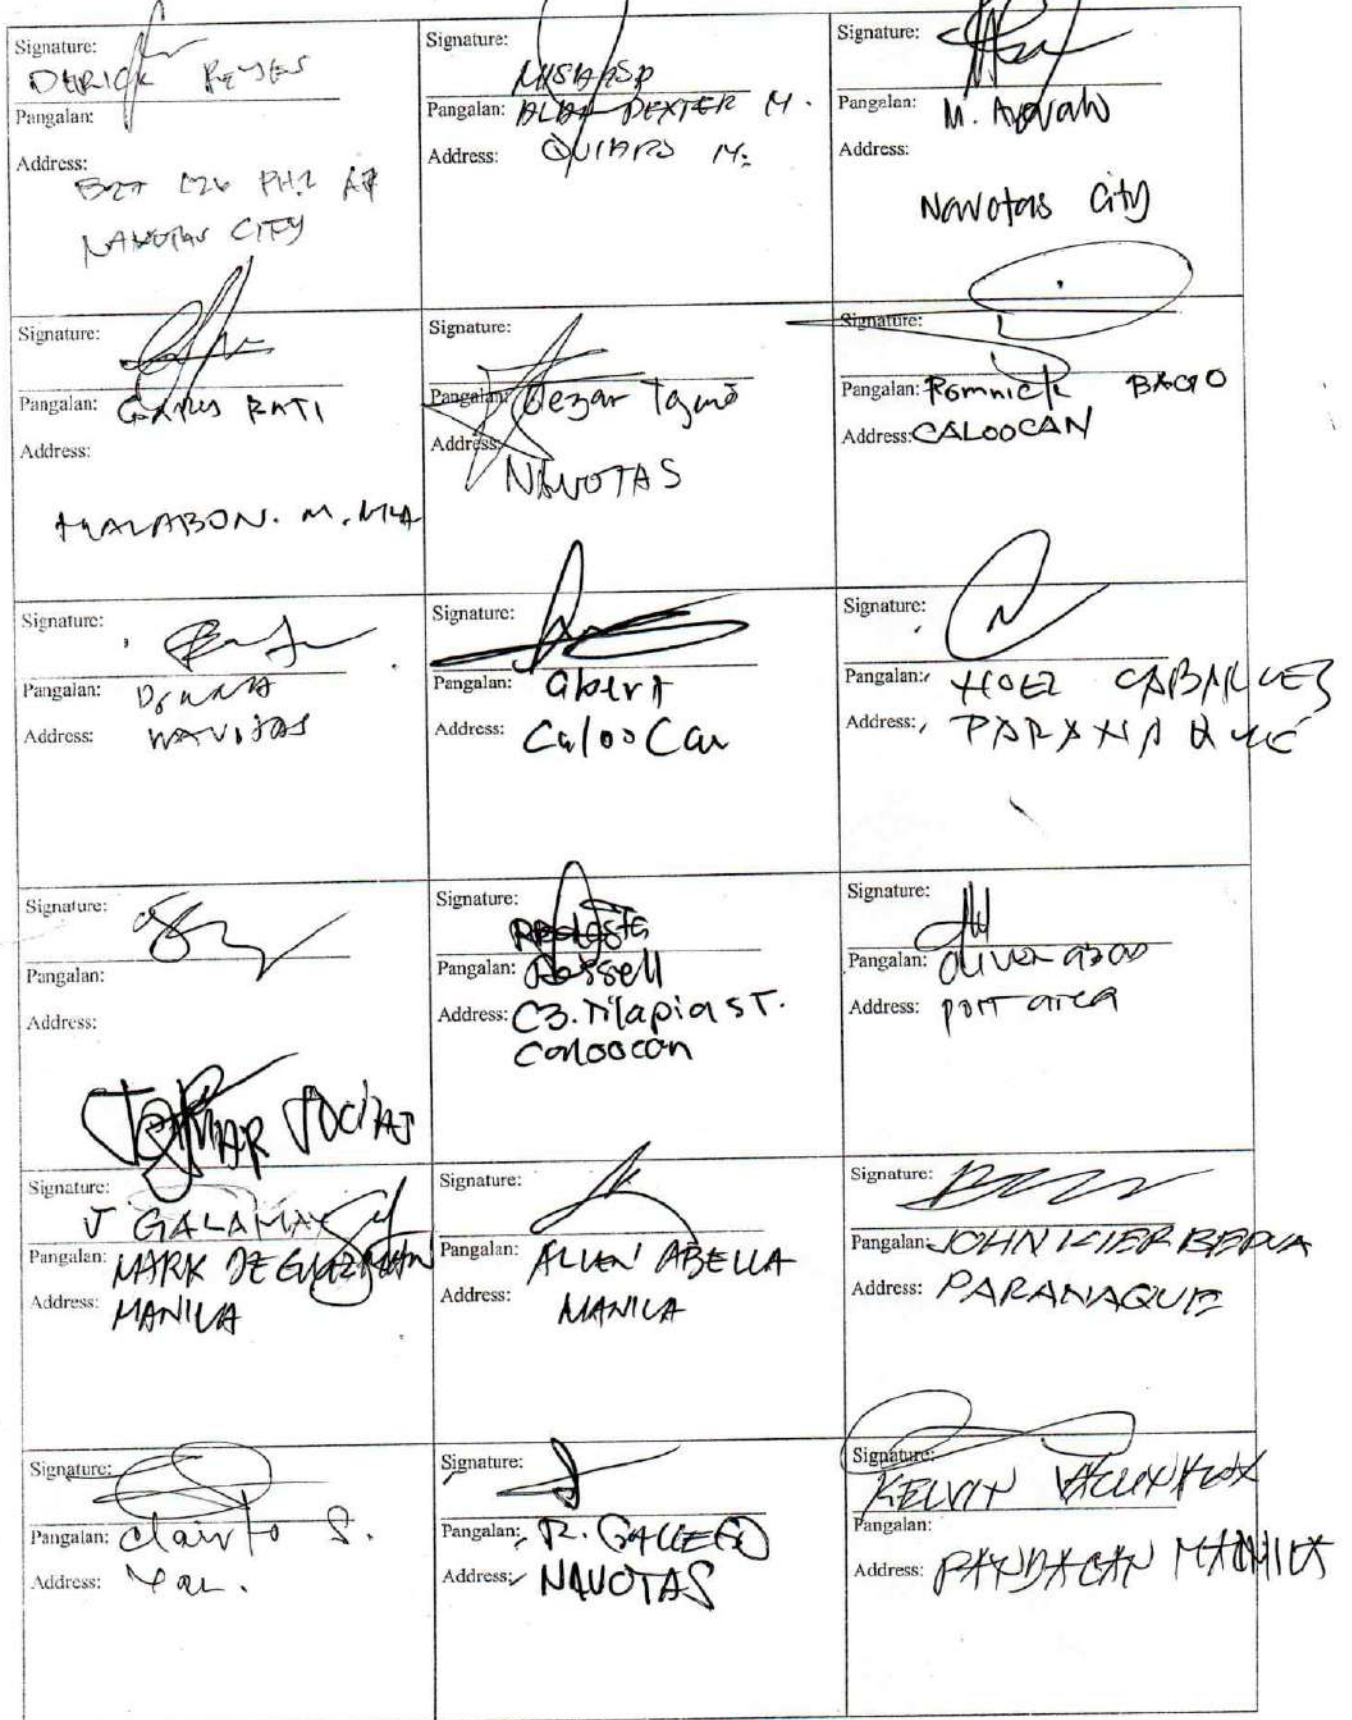 Signature:
DERICK REYES
Pangalan:
Address:
B27 L26 PH2 A7
NAVOTAS CITY
Signature:
Pangalan: DEXTER M.
Address: M.
Signature:
Pangalan: M.
Address:
Navotas City
Signature:
Pangalan:
Address:
MALABON. M. MLA
Signature:
Pangalan: Cezar
Address:
NAVOTAS
Signature:
Pangalan: Romnick BAGO
Address: CALOOCAN
Signature:
Pangalan: Donna
Address: NAVOTAS
Signature:
Pangalan: Albert
Address: Caloocan
Signature:
Pangalan: NOEL
Address: PARANAQUE
Signature:
Pangalan:
Address:
JOMAR
Signature:
Pangalan: Rossell
Address: C3. Tilapia ST.
Caloocan
Signature:
Pangalan: Oliver
Address: port area
Signature:
J GALAMAY
Pangalan: MARK DE GUZMAN
Address: MANILA
Signature:
Pangalan: ALLEN ABELLA
Address: MANILA
Signature:
Pangalan: JOHN KIER
Address: PARANAQUE
Signature:
Pangalan: S.
Address:
Signature:
Pangalan: R. GALLEGO
Address: NAVOTAS
Signature:
KELVIN
Pangalan:
Address: PANDACAN MANILA